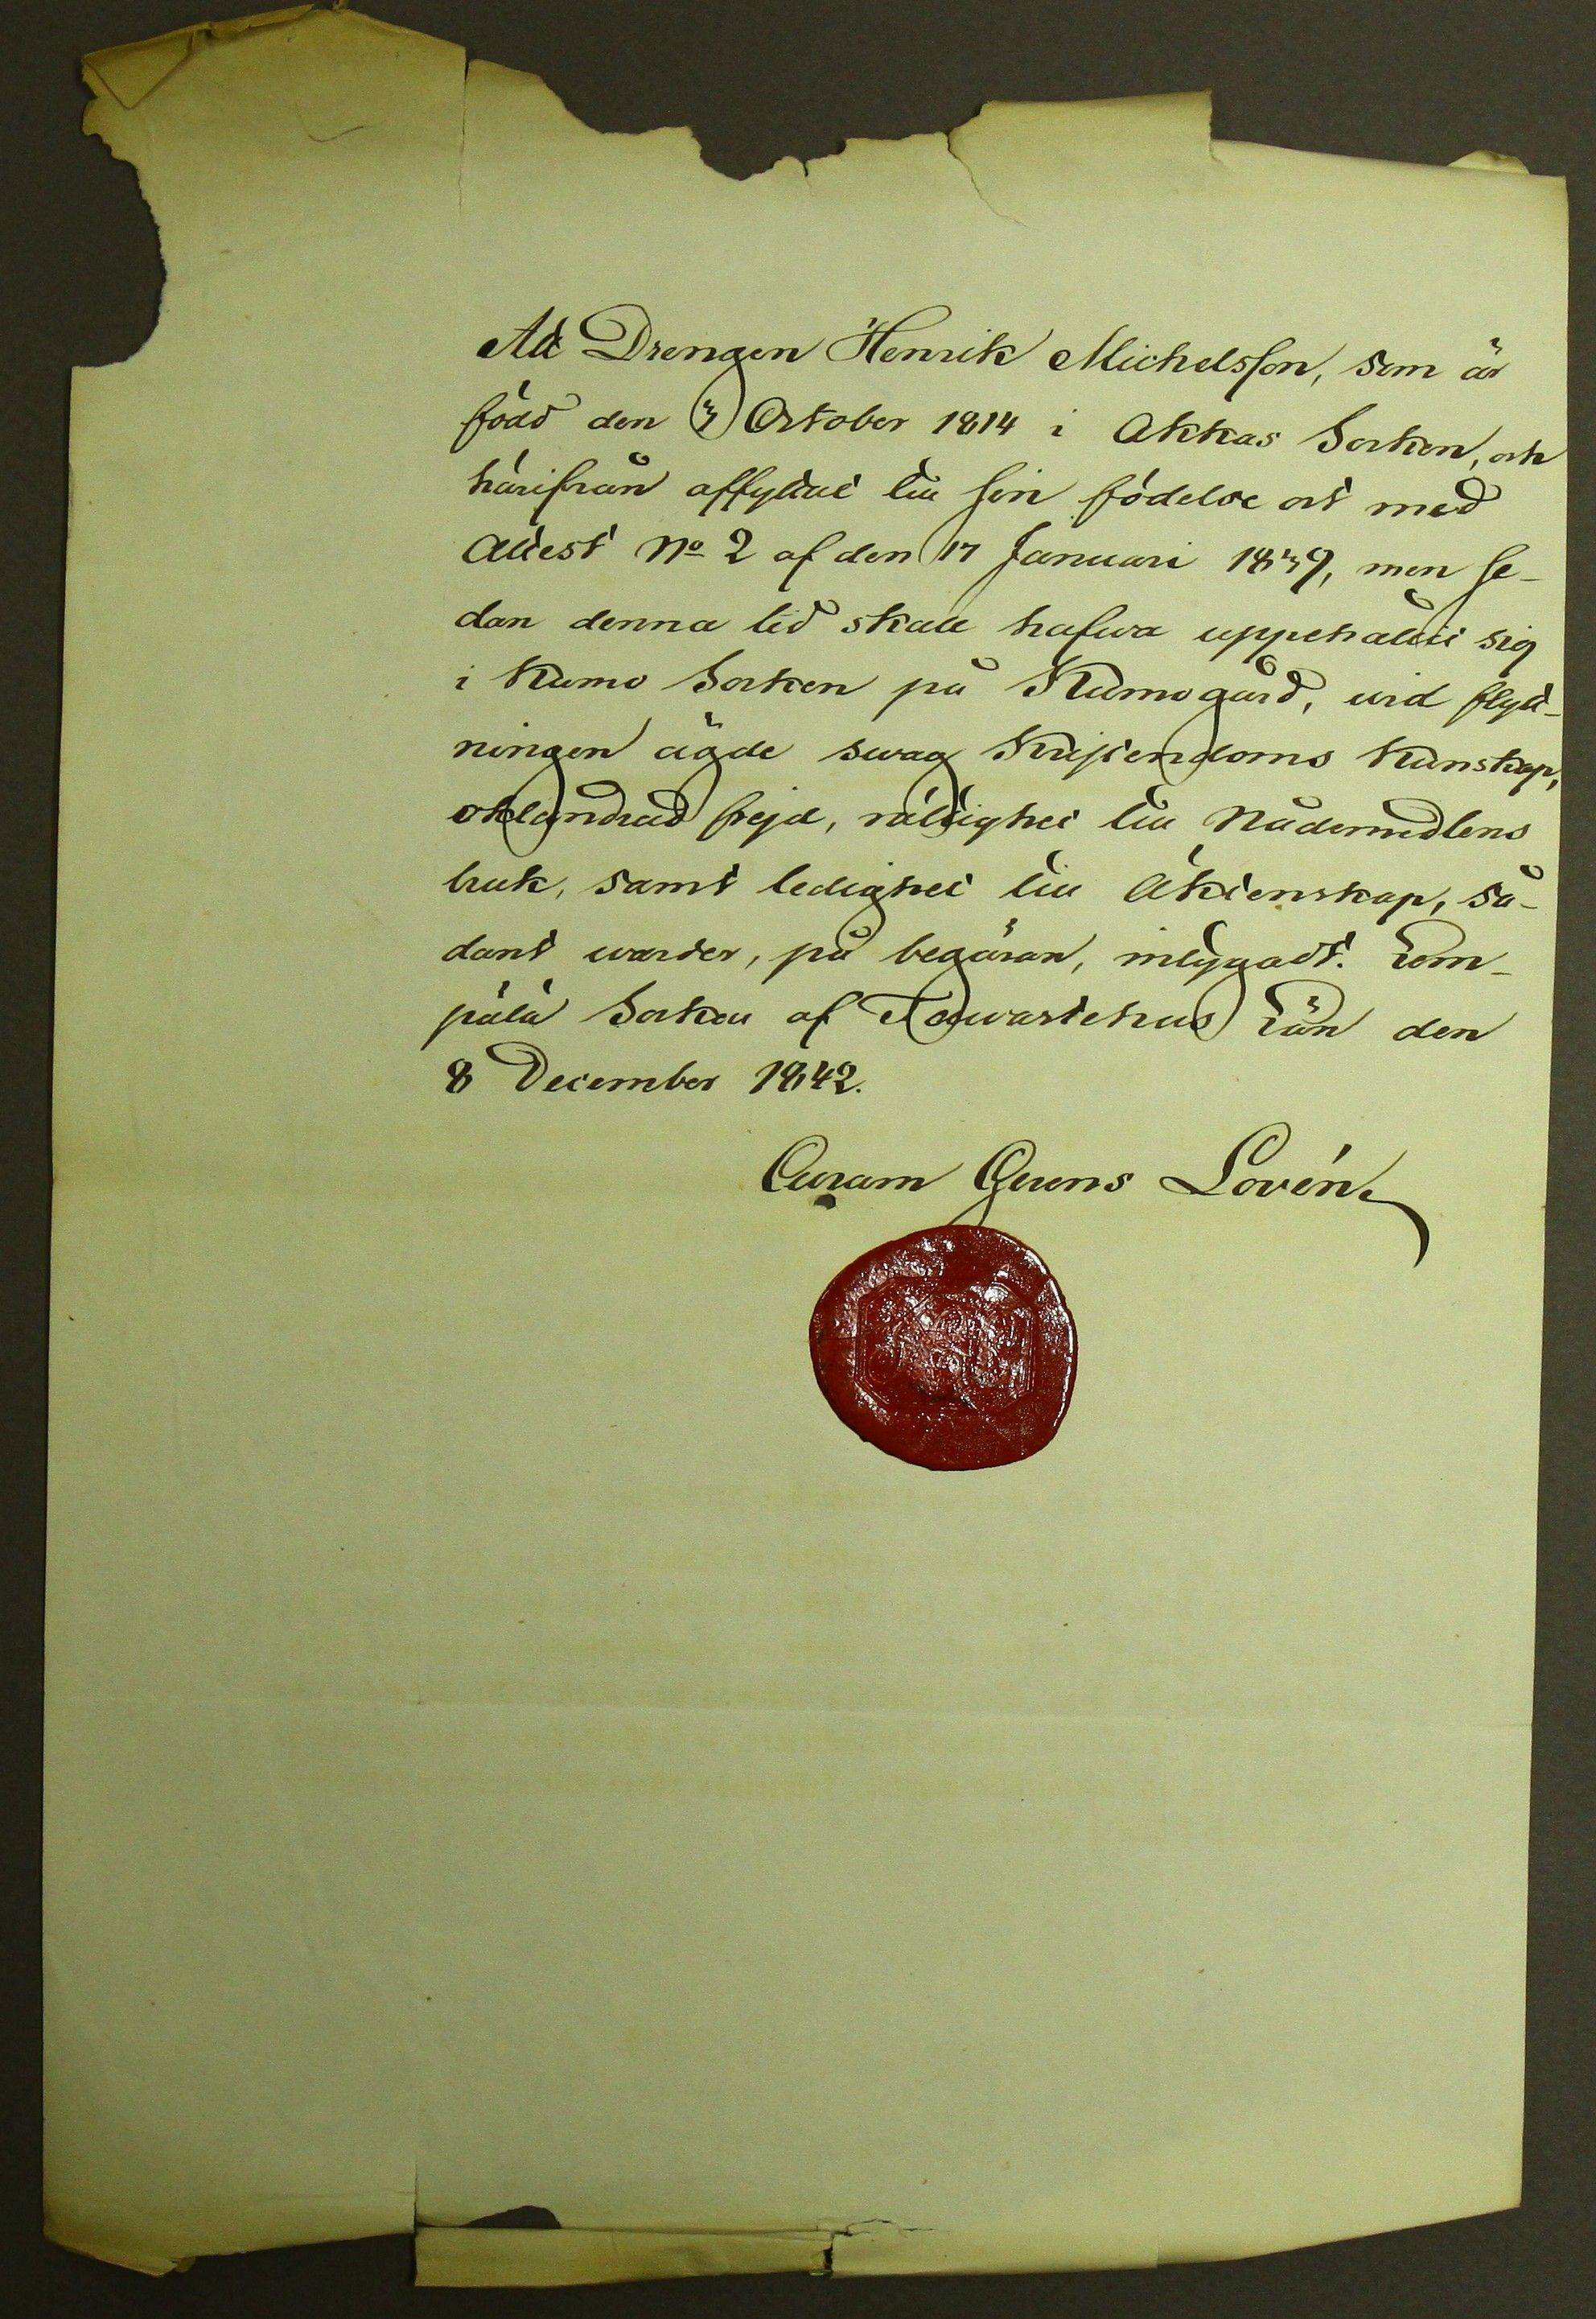 Att Drengen Henrik Michelsson, som är
född den 3 October 1814 i Akkas Socken, och
härifrån afflyttat till sin födelse ort med
Attest No 2 af den 17 Januari 1839, men se-
dan denna tid skall hafwa uppehållit sig
i Kumo Socken på Kumogård, wid flytt-
ningen ägde swag Kristendoms Kunskap,
oklandrad frejd, rättighet till Nådemedlens
bruk, samt ledighet till Äktenskap, så-
dant warder, på begäran, intygadt. Lem-
pälä Socken af Tawastehus Län den
8 December 1842.
Curam Gerens Lovén